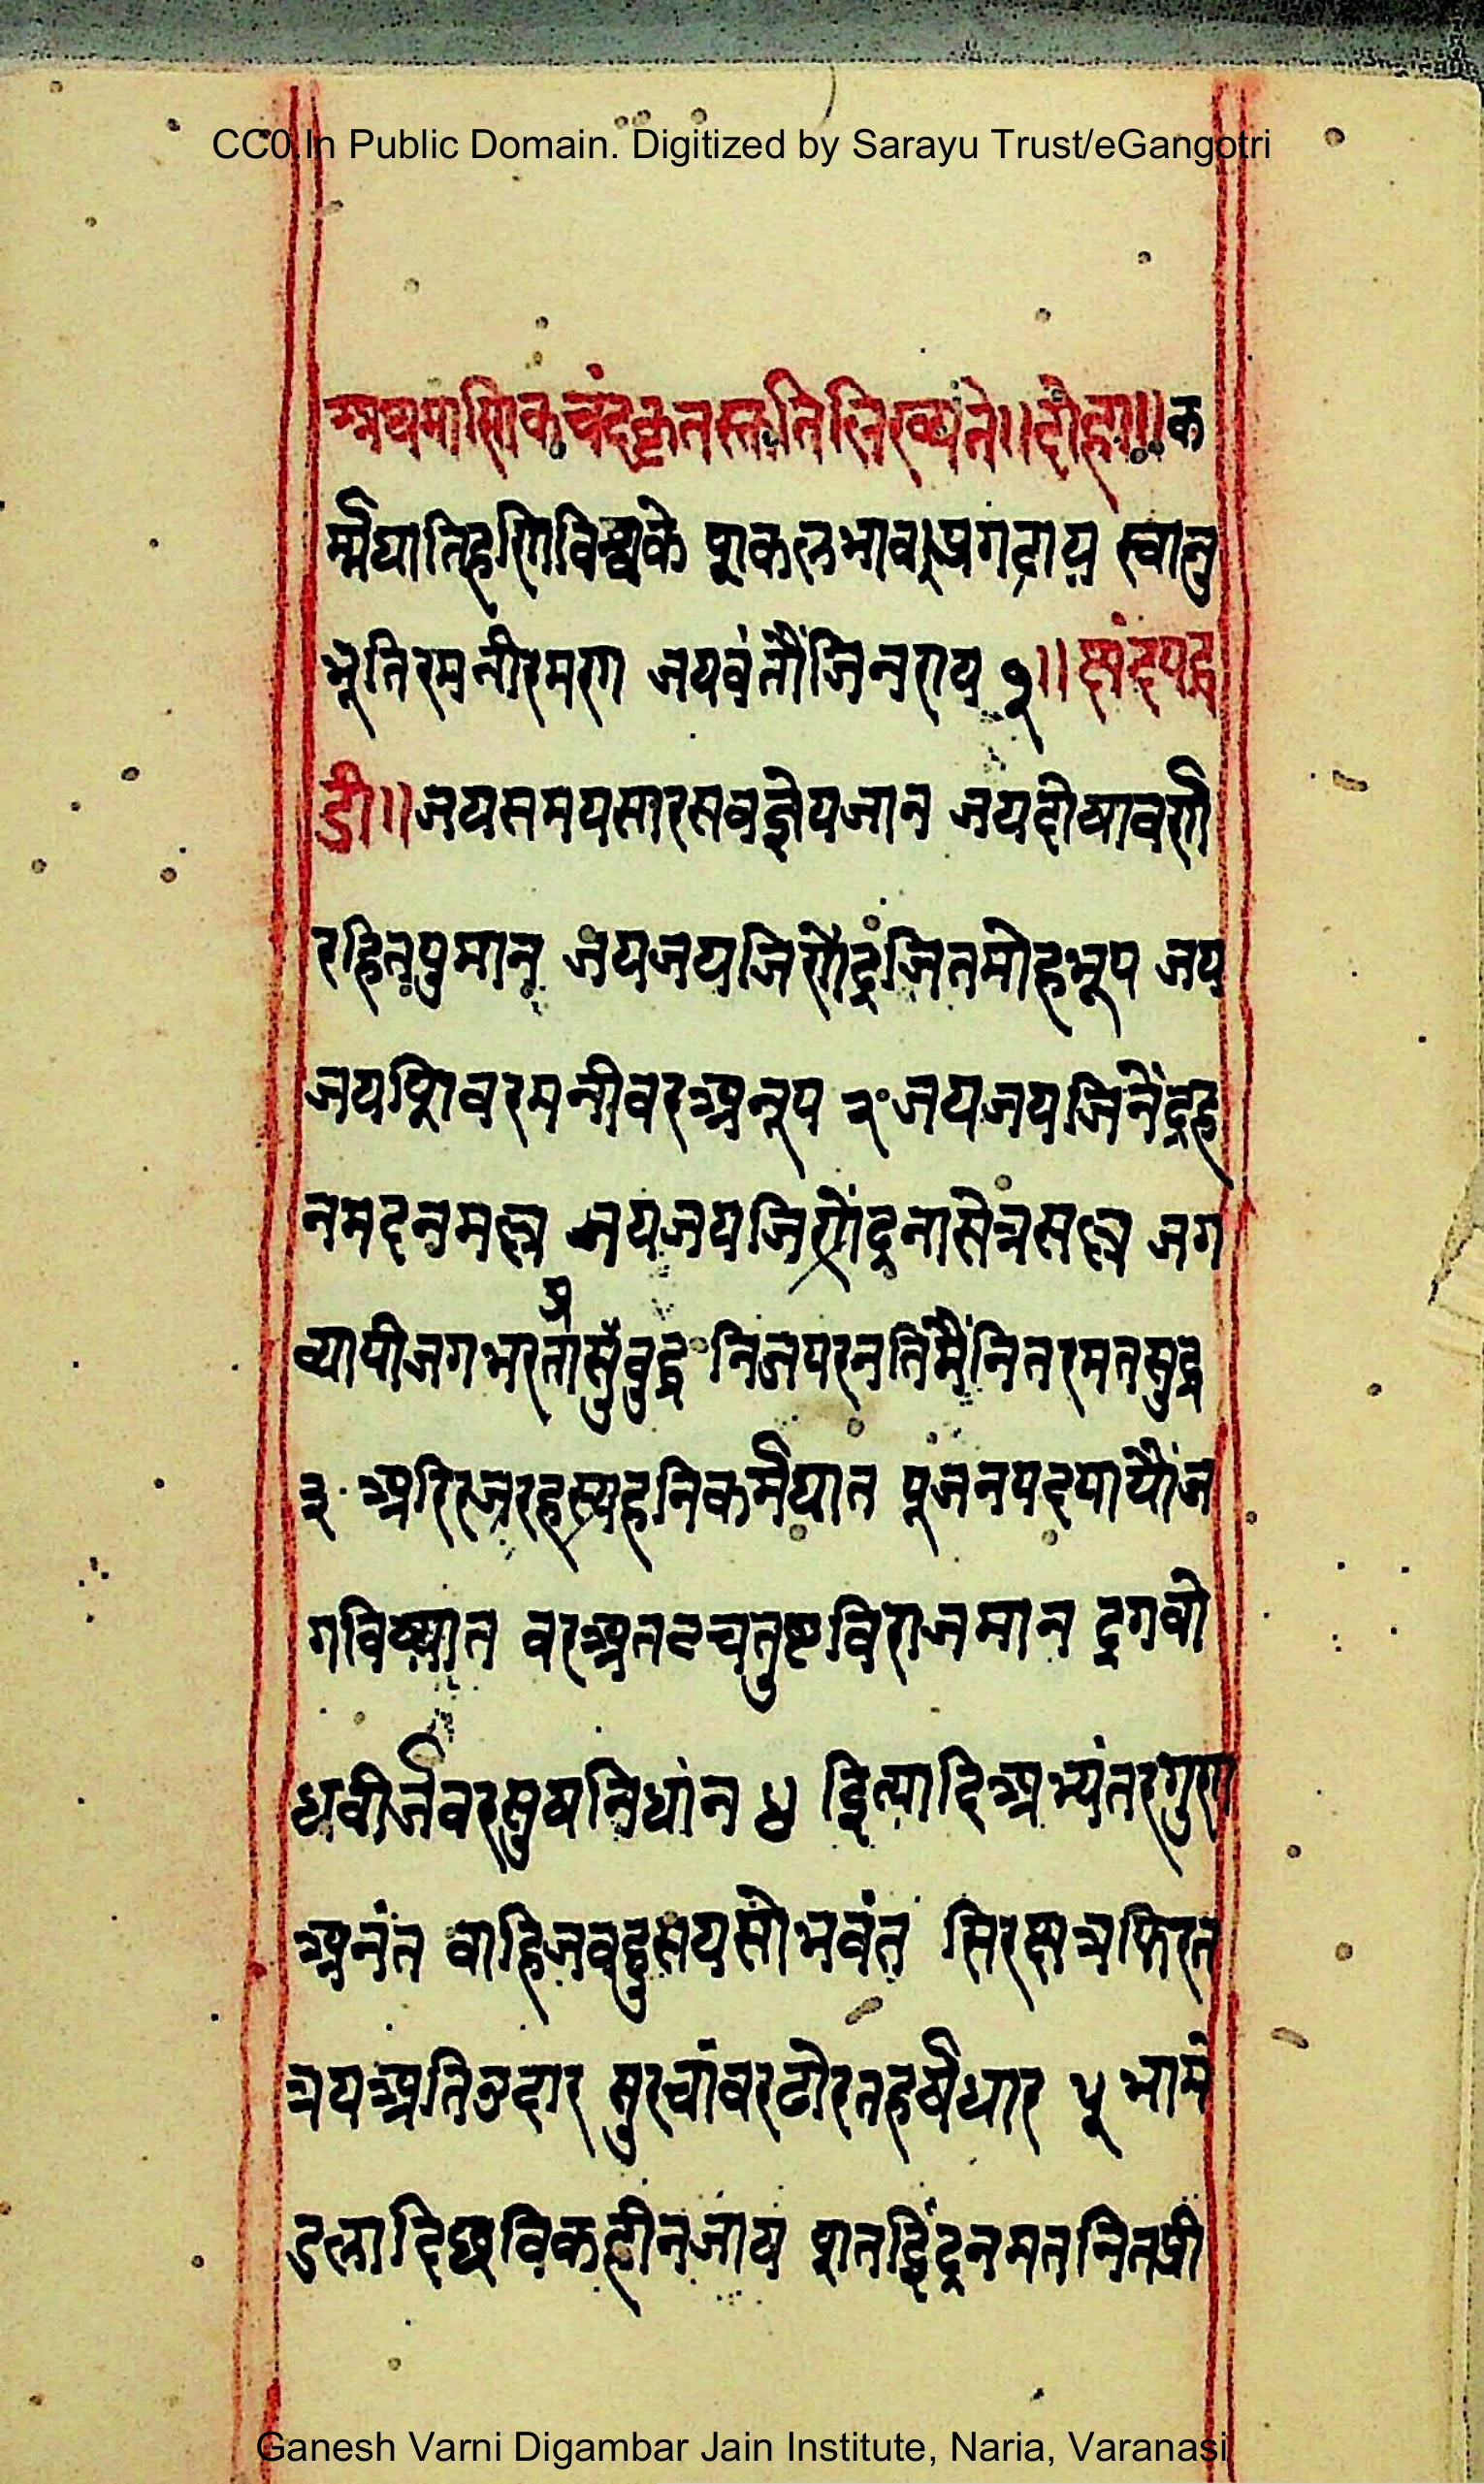 CC0.In Public Domain. Digitized by Sarayu Trust/eGangotri
अथमाणिकचंदकृतस्तुतिलिख्यते॥दोहा॥क
र्म्मघातिहणिविश्वके षूाकलभाव।प्रगटाय स्वानु
भूतिरमनीरमण जयवंतौंजिनराय १॥ छंदपद्ध
डी॥जयसमयसारसबज्ञेयजान जयदोषावर्णी
रहितपुमान जयजयजिणेंद्रजितमोहभूप जय
जयशिवरमनीवरअनूप २ जयजयजिनेंद्रह
नमदनमल्ल जयजयजिणेंद्रनासेत्रसल्ल जग
व्यापीजगभरताप्रसुंबुद्ध निजपरनतिमैंनितरमतसुद्ध
३ अरिरजरहस्यहनिकर्मघात पूजनपदपायौंज
गविख्यात वरअनतचतुष्टविराजमान द्रगबो
धवीर्जवरसुषनिधांन ४ इित्यादिअभ्यंतरगुण
अनंत बाहिजबहुसयसोभवंत सिरछत्रफिरत
त्रयअतिउदार सुरचांवरढोरतहर्षधार ५ भामं
डलादिछविकहीनजाय शतइिंद्रनमतनितशी
Ganesh Varni Digambar Jain Institute, Naria, Varanasi